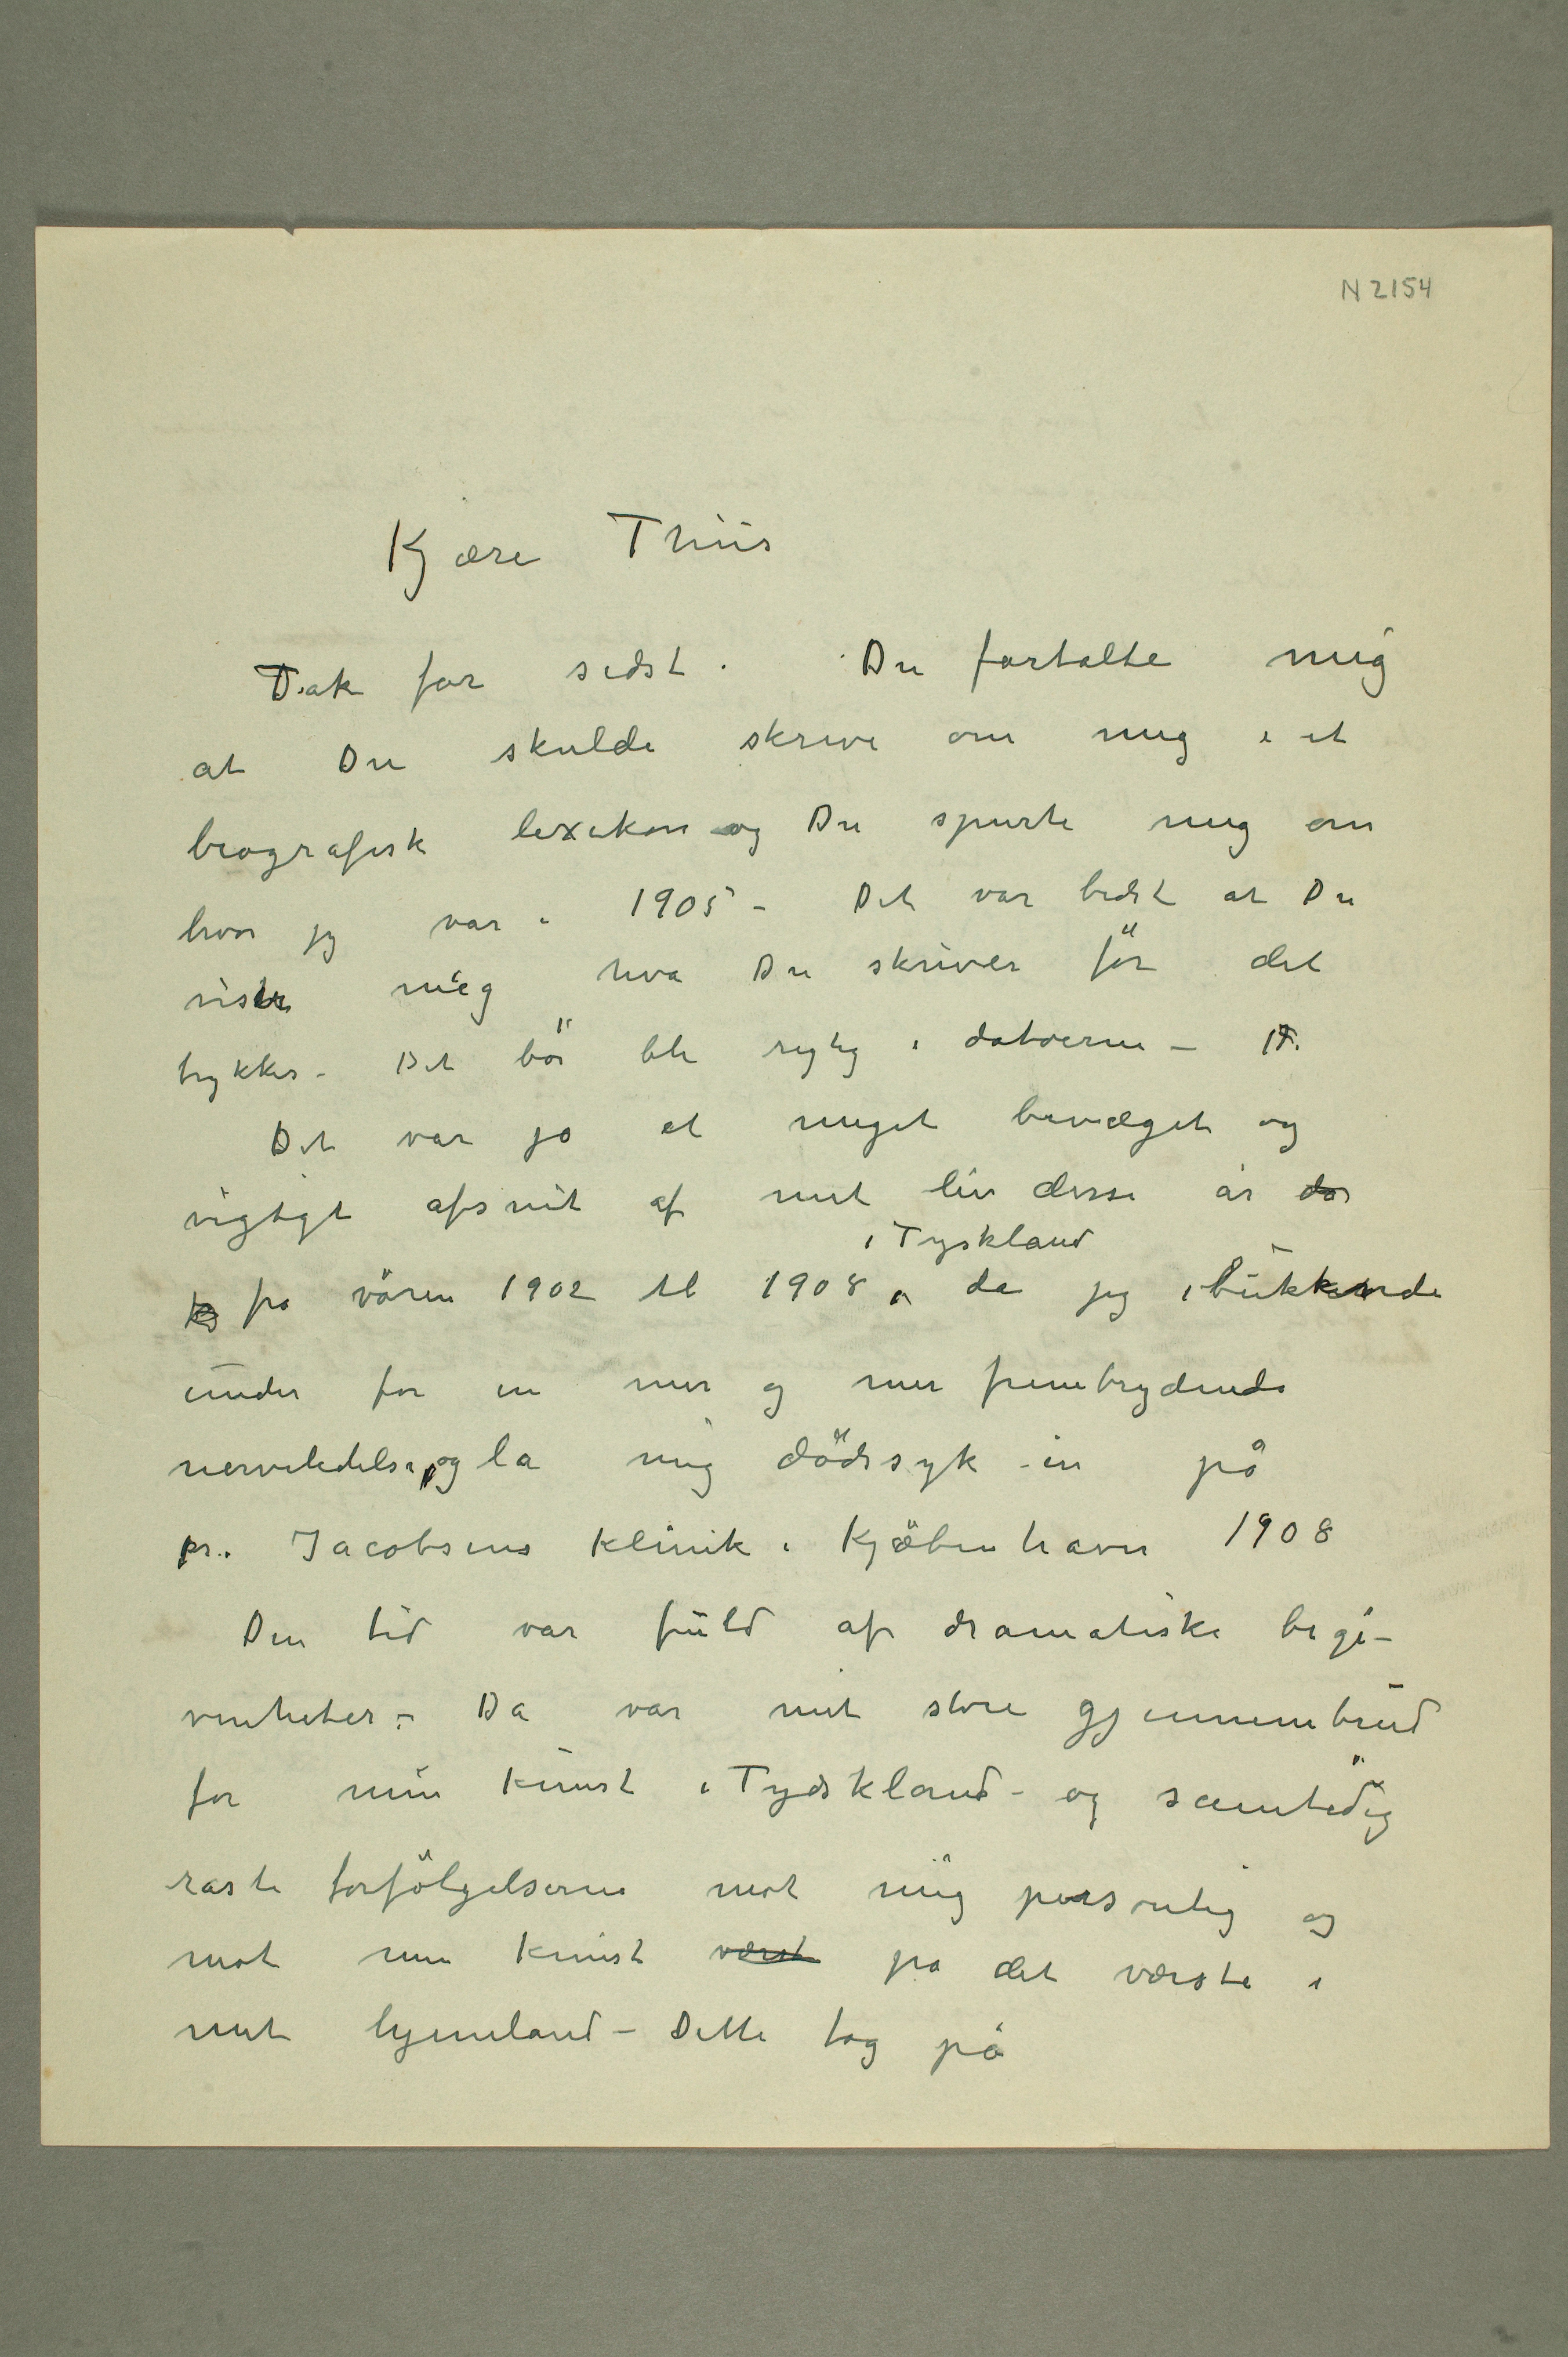 N 2154
Kjære Thiis
Tak for sidst. Du fortalte mig
at Du skulde skrive om mig i et
biografisk lexikon og Du spurte mig om
hvor jeg var i 1905 – Det var bedst at Du
viste mig hva Du skriver før det
trykkes – Det bør bli rigtig i datoerne –
Det var jo et meget bevæget og
vigtigt afsnit af mit liv disse år da
jeg fra våren 1902 til 1908 i Tyskland da jeg bukkende
under for en mer og mer frembrydende
nervelidelse og la mig dødssyk in på
pr. Jacobsens klinik i Kjøbenhavn 1908
Den tid var fuld af dramatiske begi-
venheter – Da var mit store gjennembrud
for min kunst i Tydskland – og samtidig
raste forfølgelserne mot mig personlig og
mot min kunst værst på det værste i
mit hjemland – Dette tog på